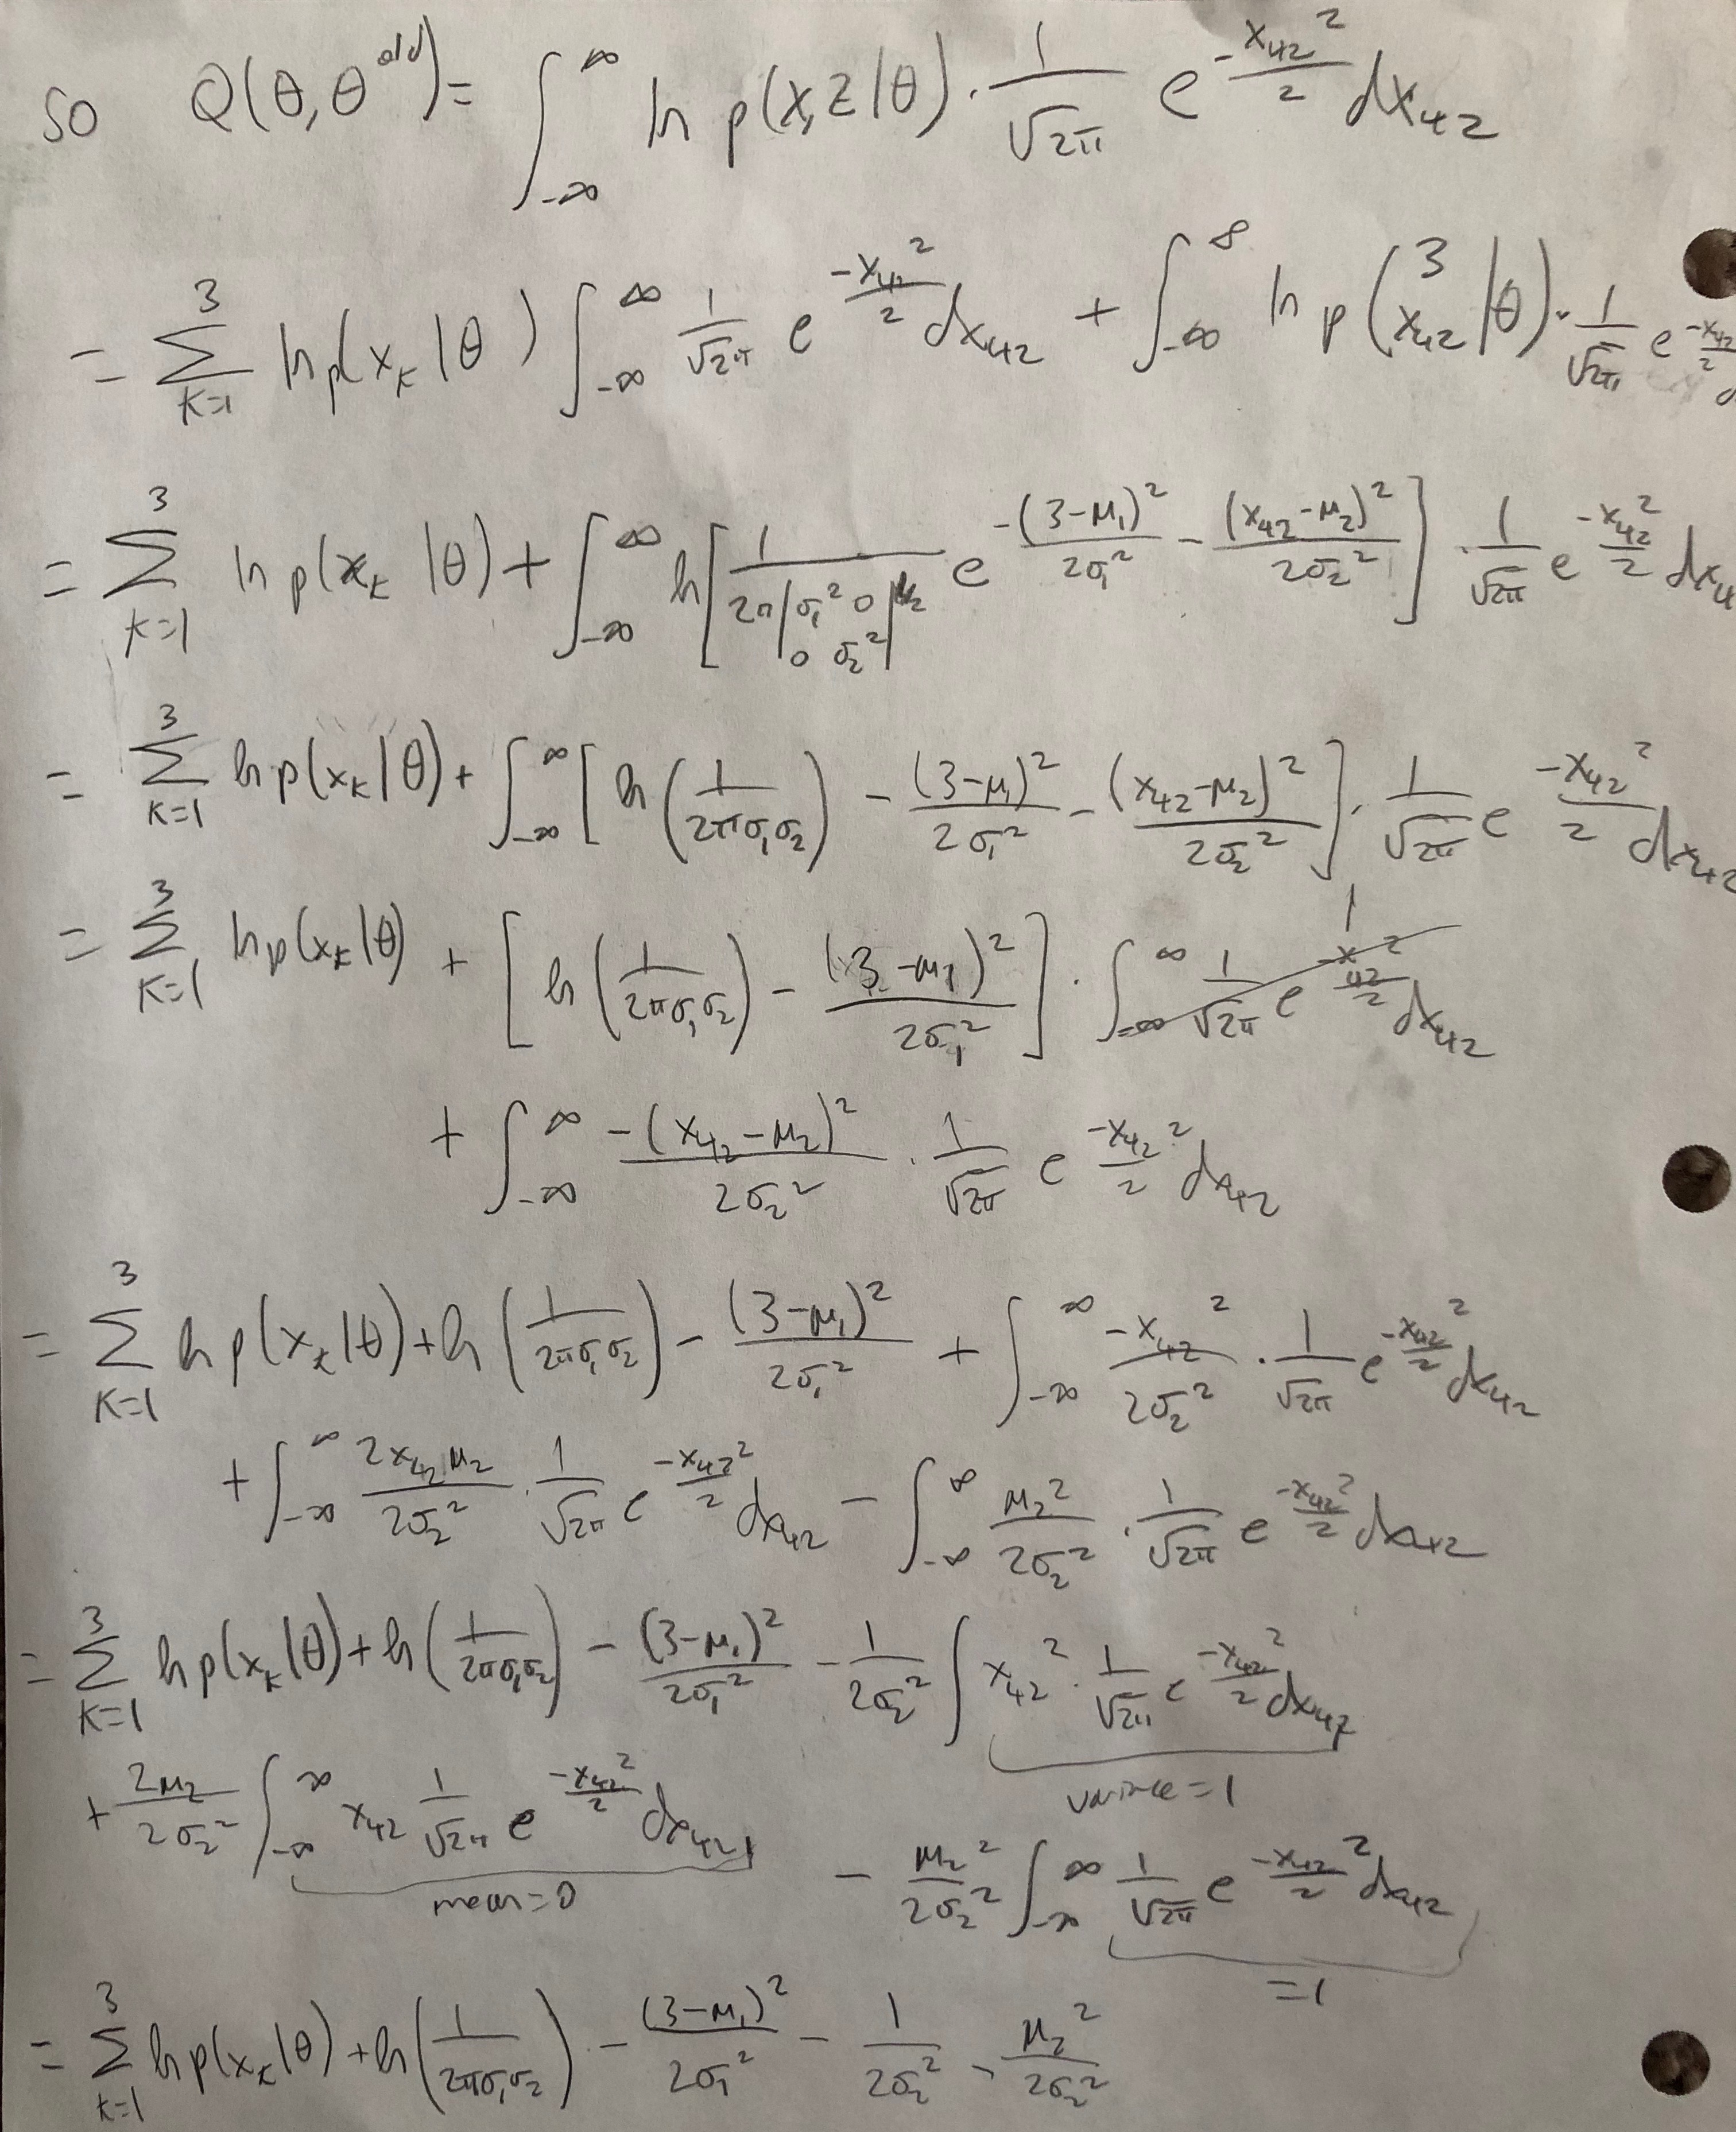 so Q(θ, θ^old) = ∫_{-∞}^{∞} ln p(x, z | θ) · 1/√2π e^{-x_42²/2} dx_42
= Σ_{k=1}^{3} ln p(x_k | θ) ∫_{-∞}^{∞} 1/√2π e^{-x_42²/2} dx_42 + ∫_{-∞}^{∞} ln p(3 x_42 | θ) · 1/√2π e^{-x_42/2} d
= Σ_{k=1}^{3} ln p(x_k | θ) + ∫_{-∞}^{∞} ln [ 1/(2π |σ_1² 0 0 σ_2²|^{1/2}) e^{-(3-μ_1)²/2σ_1² - (x_42-μ_2)²/2σ_2²} ] · 1/√2π e^{-x_42²/2} dx_4
= Σ_{k=1}^{3} ln p(x_k | θ) + ∫_{-∞}^{∞} [ ln (1/2πσ_1σ_2) - (3-μ_1)²/2σ_1² - (x_42-μ_2)²/2σ_2² ] · 1/√2π e^{-x_42²/2} dx_42
= Σ_{k=1}^{3} ln p(x_k | θ) + [ ln (1/2πσ_1σ_2) - (3-μ_1)²/2σ_1² ] · ∫_{-∞}^{∞} 1/√2π e^{-x_42²/2} dx_42 1
+ ∫_{-∞}^{∞} -(x_42-μ_2)²/2σ_2² · 1/√2π e^{-x_42²/2} dx_42
= Σ_{k=1}^{3} ln p(x_k | θ) + ln (1/2πσ_1σ_2) - (3-μ_1)²/2σ_1² + ∫_{-∞}^{∞} -x_42²/2σ_2² · 1/√2π e^{-x_42²/2} dx_42
+ ∫_{-∞}^{∞} 2x_42μ_2/2σ_2² · 1/√2π e^{-x_42²/2} dx_42 - ∫_{-∞}^{∞} μ_2²/2σ_2² · 1/√2π e^{-x_42²/2} dx_42
= Σ_{k=1}^{3} ln p(x_k | θ) + ln (1/2πσ_1σ_2) - (3-μ_1)²/2σ_1² - 1/2σ_2² ∫ x_42² · 1/√2π e^{-x_42²/2} dx_42
variance = 1
+ 2μ_2/2σ_2² ∫_{-∞}^{∞} x_42 1/√2π e^{-x_42²/2} dx_42
mean = 0
- μ_2²/2σ_2² ∫_{-∞}^{∞} 1/√2π e^{-x_42²/2} dx_42
= 1
= Σ_{k=1}^{3} ln p(x_k | θ) + ln (1/2πσ_1σ_2) - (3-μ_1)²/2σ_1² - 1/2σ_2² - μ_2²/2σ_2²